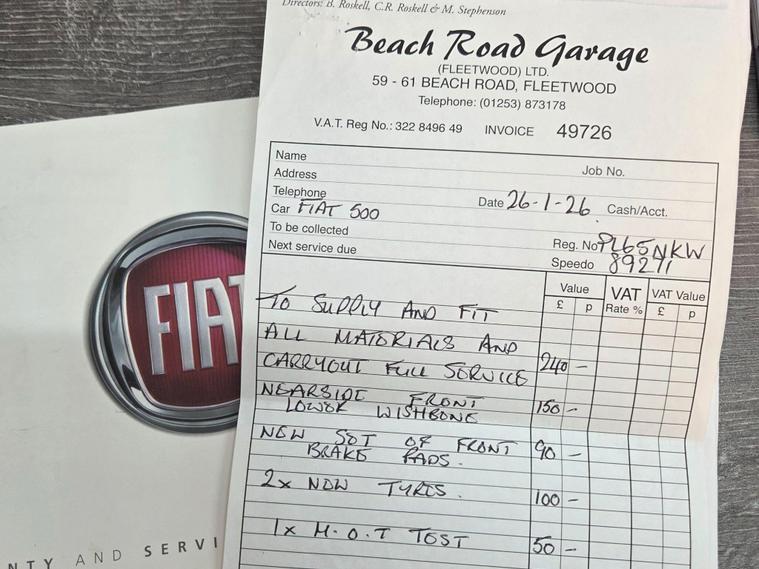 Directors: B. Roskell, C.R. Roskell & M. Stephenson
Beach Road Garage
(FLEETWOOD) LTD.
59 - 61 BEACH ROAD, FLEETWOOD
Telephone: (01253) 873178
V.A.T. Reg No.: 322 8496 49 INVOICE 49726
Name
Job No.
Address
Telephone
Date 26-1-26 Cash/Acct.
Car FIAT 500
To be collected
Reg. No PL65NKW
Next service due
Speedo 89271
Value VAT VAT Value
£ p Rate % £ p
TO SUPPLY AND FIT
ALL MATERIALS AND
CARRYOUT FULL SERVICE 240 -
NEARSIDE FRONT
LOWER WISHBONE 150 -
NEW SET OF FRONT
BRAKE PADS. 90 -
2x NEW TYRES. 100 -
1x M.O.T TEST 50 -
FIAT
NTY AND SERVI